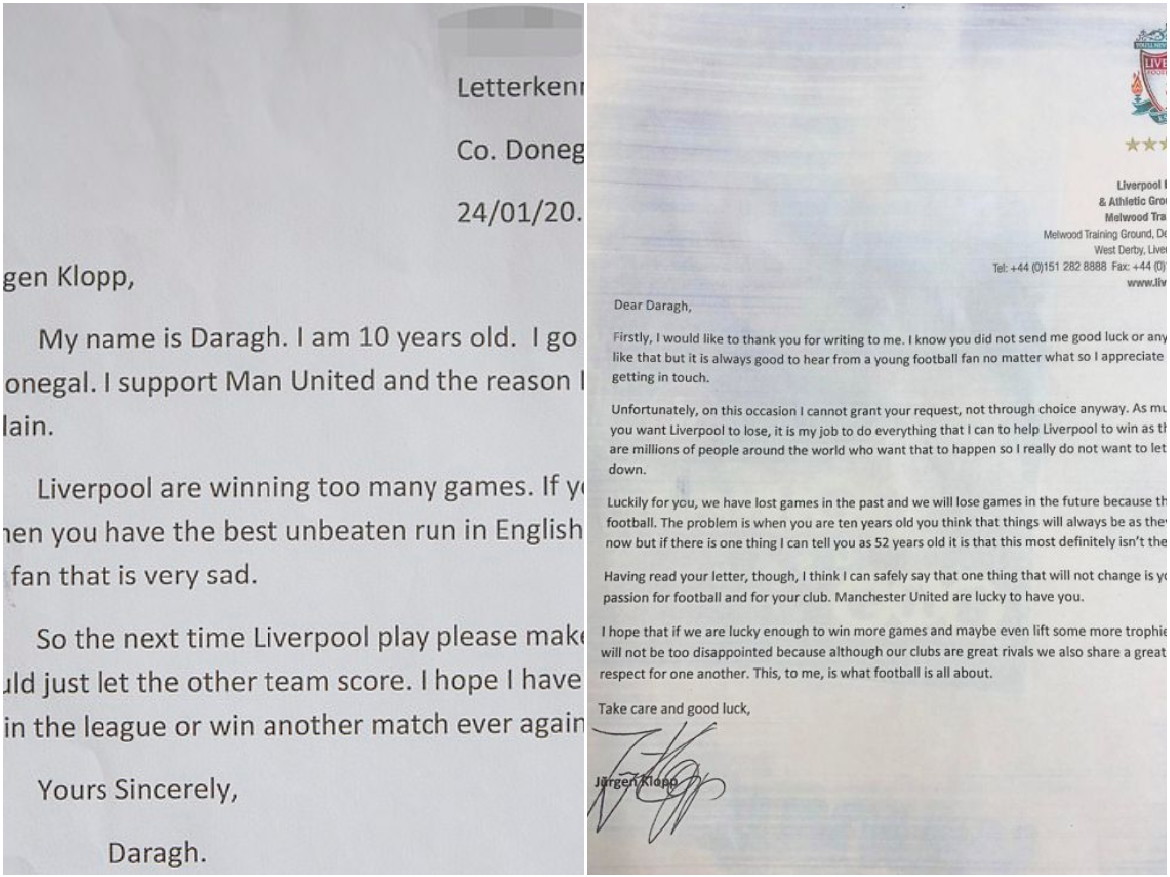 Letterkenn
Co. Doneg
24/01/20.
gen Klopp,
My name is Daragh. I am 10 years old. I go
onegal. I support Man United and the reason I
lain.
Liverpool are winning too many games. If yo
hen you have the best unbeaten run in English
fan that is very sad.
So the next time Liverpool play please make
uld just let the other team score. I hope I have
in the league or win another match ever again
Yours Sincerely,
Daragh.
LIVE
★★★
Liverpool F
& Athletic Grou
Melwood Tra
Melwood Training Ground, De
West Derby, Liver
Tel: +44 (0)151 282 8888 Fax: +44 (0)
www.liv
Dear Daragh,
Firstly, I would like to thank you for writing to me. I know you did not send me good luck or any
like that but it is always good to hear from a young football fan no matter what so I appreciate
getting in touch.
Unfortunately, on this occasion I cannot grant your request, not through choice anyway. As mu
you want Liverpool to lose, it is my job to do everything that I can to help Liverpool to win as th
are millions of people around the world who want that to happen so I really do not want to let
down.
Luckily for you, we have lost games in the past and we will lose games in the future because th
football. The problem is when you are ten years old you think that things will always be as they
now but if there is one thing I can tell you as 52 years old it is that this most definitely isn't the
Having read your letter, though, I think I can safely say that one thing that will not change is yo
passion for football and for your club. Manchester United are lucky to have you.
I hope that if we are lucky enough to win more games and maybe even lift some more trophie
will not be too disappointed because although our clubs are great rivals we also share a great
respect for one another. This, to me, is what football is all about.
Take care and good luck,
Jürgen Klopp